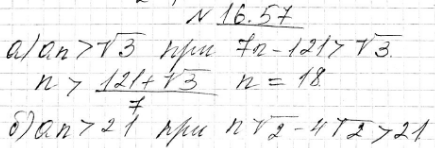 № 16.57
а) an > √3 при 7n - 121 > √3.
n > (121 + √3)/7 n = 18
б) an > 21 при n√2 - 4√2 > 21